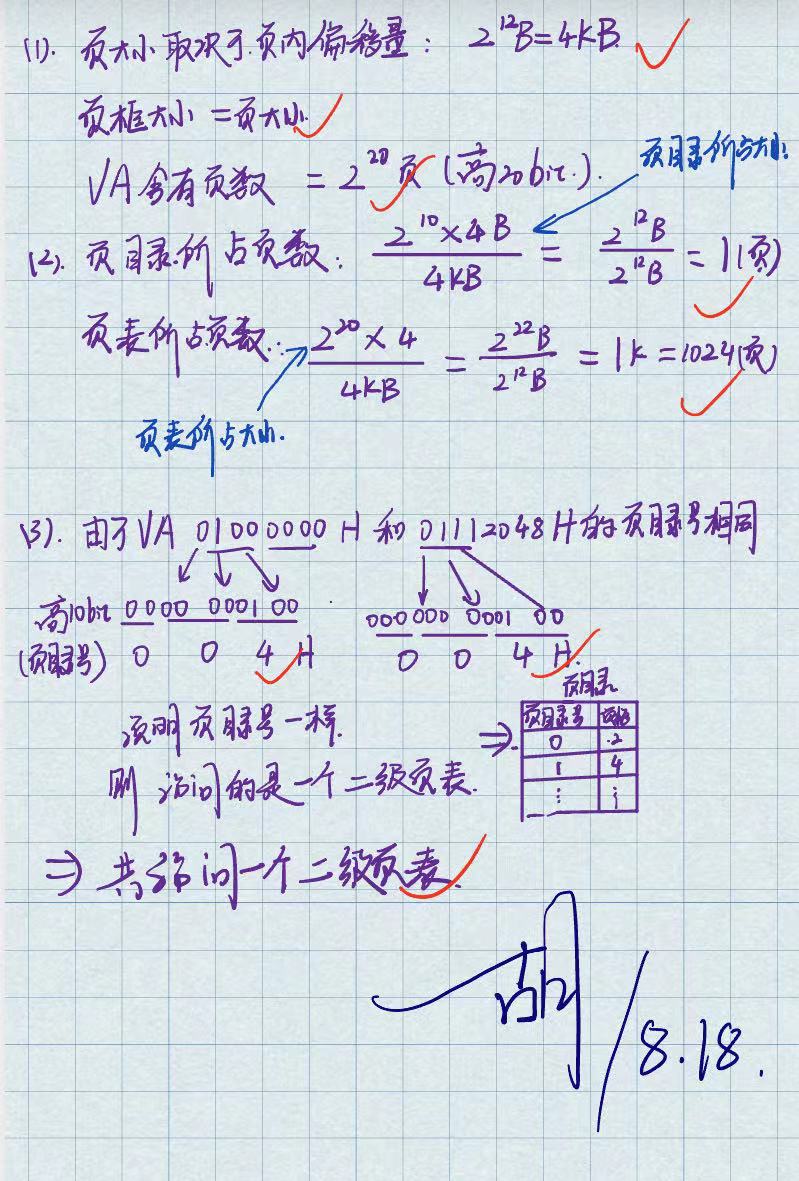 (1). 页大小取决于页内偏移量: 2^12B=4KB.
页框大小 = 页大小.
VA含有页数 = 2^20页 (高20bit).
页目录所占大小
(2). 页目录所占页数: (2^10×4B)/(4KB) = (2^12B)/(2^12B) = 1(页)
页表所占页数: (2^20×4)/(4KB) = (2^22B)/(2^12B) = 1K = 1024(页)
页表所占大小.
(3). 由于VA 01000000 H 和 01112048H的页目录号相同
高10bit 0000 0001 00 000 000 0001 00
(页目录号) 0 0 4 H 0 0 4 H.
说明页目录号一样.
则访问的是一个二级页表.
页目录
⇒ 页目录号 页框
0 2
1 4
⋮ ⋮
⇒ 共访问一个二级页表.
胡/8.18.